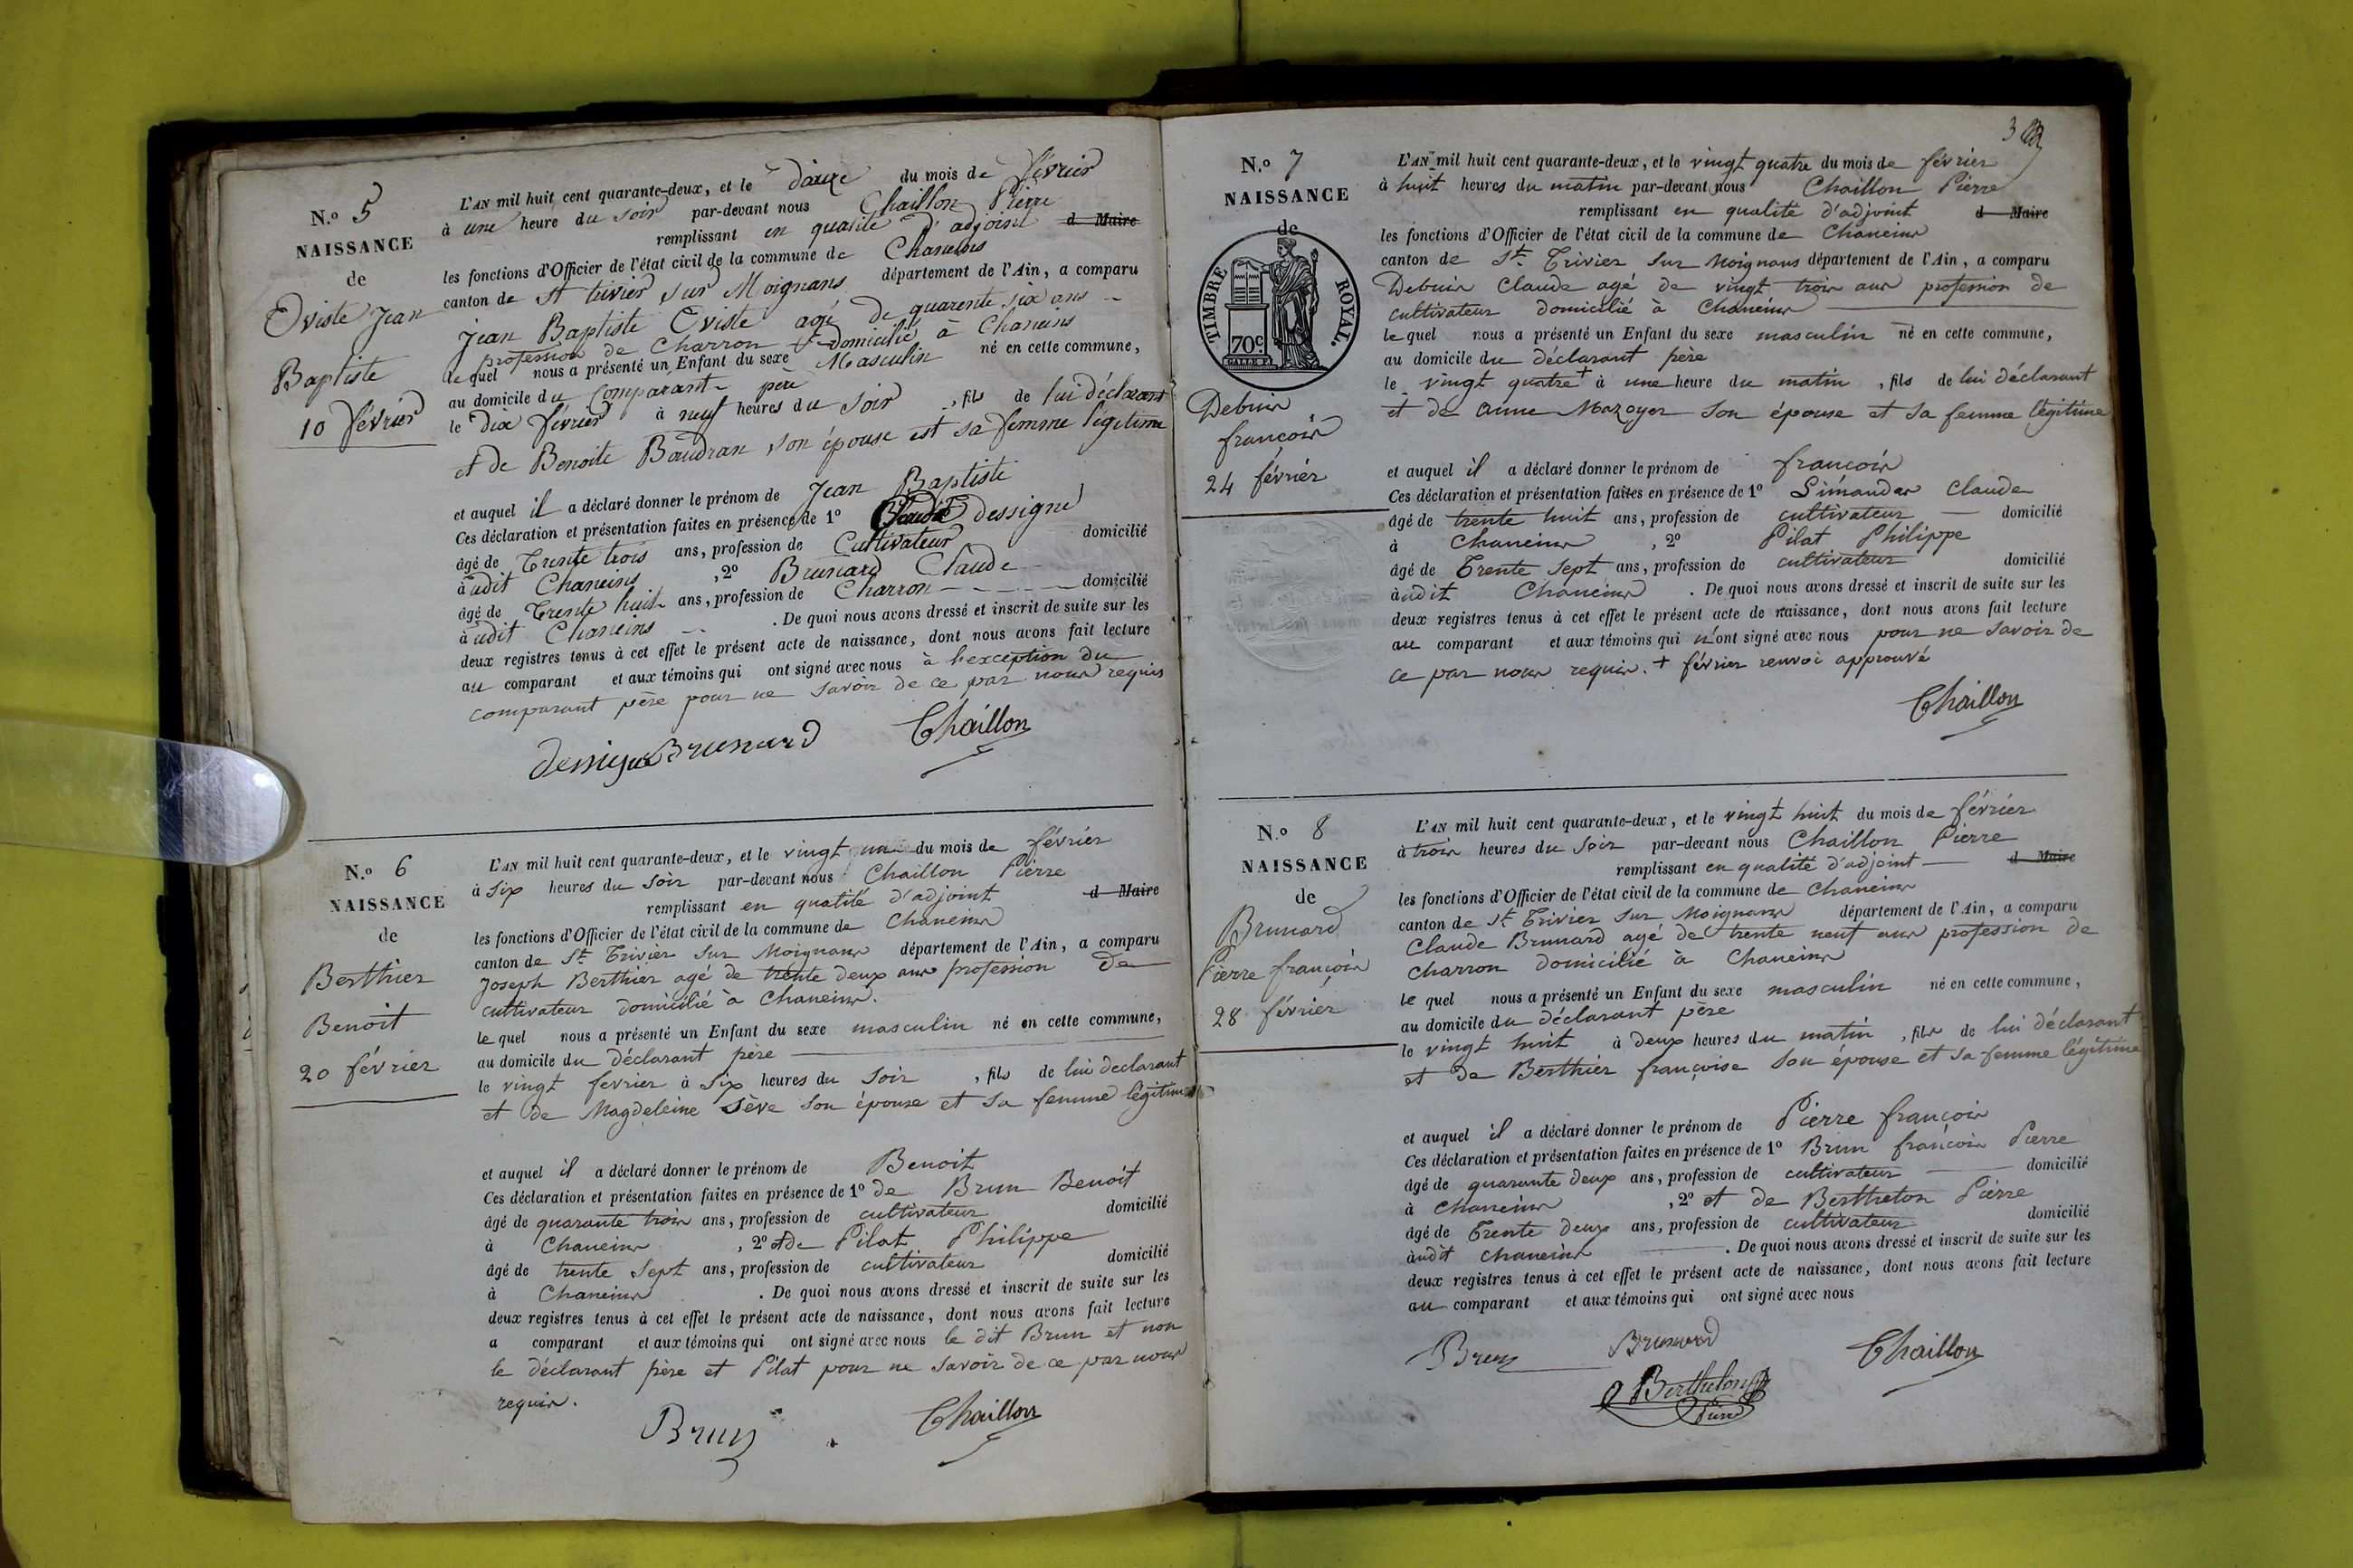 N.º 5
NAISSANCE
de
Oviste Jean
Baptiste
10 février
L'AN mil huit cent quarante-deux, et le douze du mois de février
à une heure du soir par-devant nous Chaillon Pierre
remplissant en qualité d'adjoint d Maire
les fonctions d'Officier de l'état civil de la commune de Chaneins
canton de St trivier sur Moignans département de l'Ain, a comparu
Jean Baptiste Oviste agé de quarente six ans
profession de Charron domicilié à Chaneins
lequel nous a présenté un Enfant du sexe Masculin né en cette commune,
au domicile du Comparant père
le Dix février à neuf heures du soir, fils de lui déclarant
et de Benoite Baudran son épouse et sa femme légitime
et auquel il a déclaré donner le prénom de Jean Baptiste
Ces déclaration et présentation faites en présence de 1º Claude dessigne
âgé de Trente trois ans, profession de Cultivateur domicilié
à udit Chaneins, 2º Brunard Claude
âgé de Trente huit ans, profession de Charron domicilié
à udit Chaneins. De quoi nous avons dressé et inscrit de suite sur les
deux registres tenus à cet effet le présent acte de naissance, dont nous avons fait lecture
au comparant et aux témoins qui ont signé avec nous à l'exception du
comparant père pour ne savoir de ce par nous requis
dessigne Brunard Chaillon
N.º 6
NAISSANCE
de
Berthier
Benoit
20 février
L'AN mil huit cent quarante-deux, et le vingt un du mois de février
à six heures du soir par-devant nous Chaillon Pierre
remplissant en qualité d'adjoint d Maire
les fonctions d'Officier de l'état civil de la commune de Chaneins
canton de St Trivier sur Moignans département de l'Ain, a comparu
Joseph Berthier agé de trente deux ans profession de
cultivateur domicilié à Chaneins.
lequel nous a présenté un Enfant du sexe masculin né en cette commune,
au domicile du déclarant père
le vingt fevrier à six heures du soir, fils de lui declarant
et de Magdeleine Sève son épouse et sa femme légitime
et auquel il a déclaré donner le prénom de Benoit
Ces déclaration et présentation faites en présence de 1º de Brun Benoit
âgé de quarante trois ans, profession de cultivateur domicilié
à Chaneins, 2º et de Pilat Philippe
âgé de trente sept ans, profession de cultivateur domicilié
à Chaneins. De quoi nous avons dressé et inscrit de suite sur les
deux registres tenus à cet effet le présent acte de naissance, dont nous avons fait lecture
a comparant et aux témoins qui ont signé avec nous le dit Brun et non
le déclarant père et Pilat pour ne savoir de ce par nous
requis.
Brun Chaillon
3
N.º 7
NAISSANCE
de
TIMBRE ROYAL.
70c
Debuis
françois
24 février
L'AN mil huit cent quarante-deux, et le vingt quatre du mois de février
à huit heures du matin par-devant nous Chaillon Pierre
remplissant en qualité d'adjoint d Maire
les fonctions d'Officier de l'état civil de la commune de Chaneins
canton de St. Trivier sur Moignans département de l'Ain, a comparu
Debuis Claude agé de vingt trois ans profession de
cultivateur domicilié à Chaneins
lequel nous a présenté un Enfant du sexe masculin né en cette commune,
au domicile du déclarant père
le vingt quatre + à une heure du matin, fils de lui déclarant
et de anne Mazoyer son épouse et sa femme légitime
et auquel il a déclaré donner le prénom de françois
Ces déclaration et présentation faites en présence de 1º Simandes Claude
âgé de trente huit ans, profession de cultivateur domicilié
à Chaneins, 2º Pilat Philippe
âgé de Trente sept ans, profession de cultivateur domicilié
à udit Chaneins. De quoi nous avons dressé et inscrit de suite sur les
deux registres tenus à cet effet le présent acte de naissance, dont nous avons fait lecture
au comparant et aux témoins qui n'ont signé avec nous pour ne savoir de
ce par nous requis. + février renvoi approuvé
Chaillon
N.º 8
NAISSANCE
de
Brunard
Pierre françois
28 février
L'AN mil huit cent quarante-deux, et le vingt huit du mois de février
à trois heures du soir par-devant nous Chaillon Pierre
remplissant en qualité d'adjoint d Maire
les fonctions d'Officier de l'état civil de la commune de Chaneins
canton de St Trivier sur Moignans département de l'Ain, a comparu
Claude Brunard agé de trente neuf ans profession de
charron domicilié à Chaneins
le quel nous a présenté un Enfant du sexe masculin né en cette commune,
au domicile du déclarant père
le vingt huit à deux heures du matin, fils de lui déclarant
et de Berthier françoise son épouse et sa femme légitime
et auquel il a déclaré donner le prénom de Pierre françois
Ces déclaration et présentation faites en présence de 1º Brun françois Pierre
âgé de quarante deux ans, profession de cultivateur domicilié
à Chaneins, 2º et de Berthelon Pierre
âgé de Trente deux ans, profession de cultivateur domicilié
à udit chaneins. De quoi nous avons dressé et inscrit de suite sur les
deux registres tenus à cet effet le présent acte de naissance, dont nous avons fait lecture
au comparant et aux témoins qui ont signé avec nous
Brun Brunard Chaillon
Berthelon
Pierre